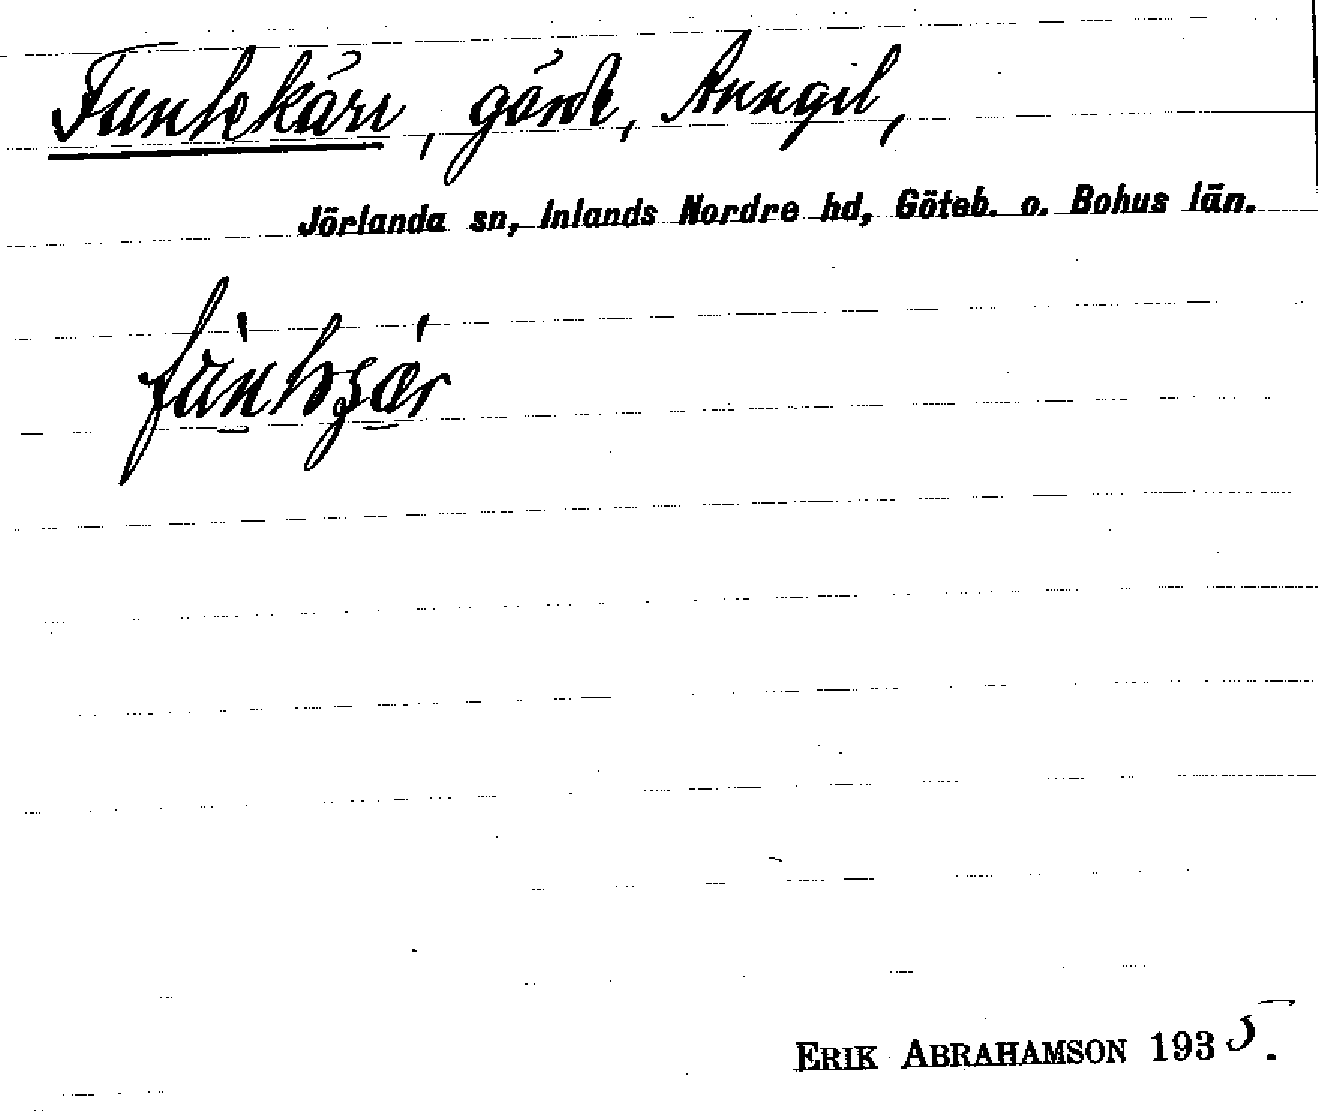 Funkekärr, gärde, Anngil,
Jörlanda sn, Inlands Nordre hd, Göteb. o. Bohus län.
ERIK ABRAHAMSON 1935.